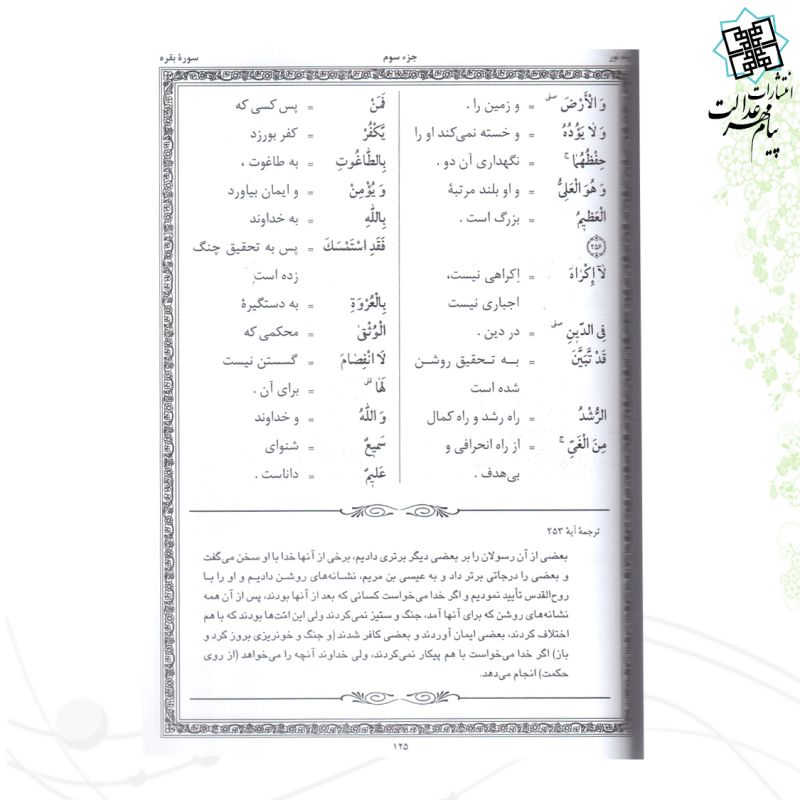 سورهٔ بقره
جزء سوم
وَ الْأَرْضَ = و زمین را .
وَ لَا یَؤُدُهُ = و خسته نمی‌کند او را
حِفْظُهُمٰا = نگهداری آن دو .
وَ هُوَ الْعَلِیُّ = و او بلند مرتبهٔ
الْعَظِیمُ = بزرگ است .
۲۵۶
لَآ إِکْرٰاهَ = اِکراهی نیست،
اجباری نیست
فِی الدِّینِ = در دین .
قَدْ تَبَیَّنَ = به تحقیق روشن
شده است
الرُّشْدُ = راه رشد و راه کمال
مِنَ الْغَیِّ = از راه انحرافی و
بی‌هدف .
فَمَنْ = پس کسی که
یَّکْفُرْ = کفر بورزد
بِالطّٰاغُوتِ = به طاغوت ،
وَ یُؤْمِنْ = و ایمان بیاورد
بِاللّٰهِ = به خداوند
فَقَدِ اسْتَمْسَكَ = پس به تحقیق چنگ
زده است
بِالْعُرْوَةِ = به دستگیرهٔ
الْوُثْقىٰ = محکمی که
لَا انْفِصٰامَ = گسستن نیست
لَهٰا = برای آن .
وَ اللّٰهُ = و خداوند
سَمِیعٌ = شنوای
عَلِیمٌ = داناست .
ترجمهٔ آیهٔ ۲۵۳
بعضی از آن رسولان را بر بعضی دیگر برتری دادیم، برخی از آنها خدا با او سخن می‌گفت
و بعضی را درجاتی برتر داد و به عیسی بن مریم، نشانه‌های روشن دادیم و او را با
روح‌القدس تأیید نمودیم و اگر خدا می‌خواست کسانی که بعد از آنها بودند، پس از آن همه
نشانه‌های روشن که برای آنها آمد، جنگ و ستیز نمی‌کردند ولی این امّت‌ها بودند که با هم
اختلاف کردند، بعضی ایمان آوردند و بعضی کافر شدند (و جنگ و خونریزی بروز کرد و
باز) اگر خدا می‌خواست با هم پیکار نمی‌کردند، ولی خداوند آنچه را می‌خواهد (از روی
حکمت) انجام می‌دهد.
۱۲۵
انتشارات
پیام مهر عدالت